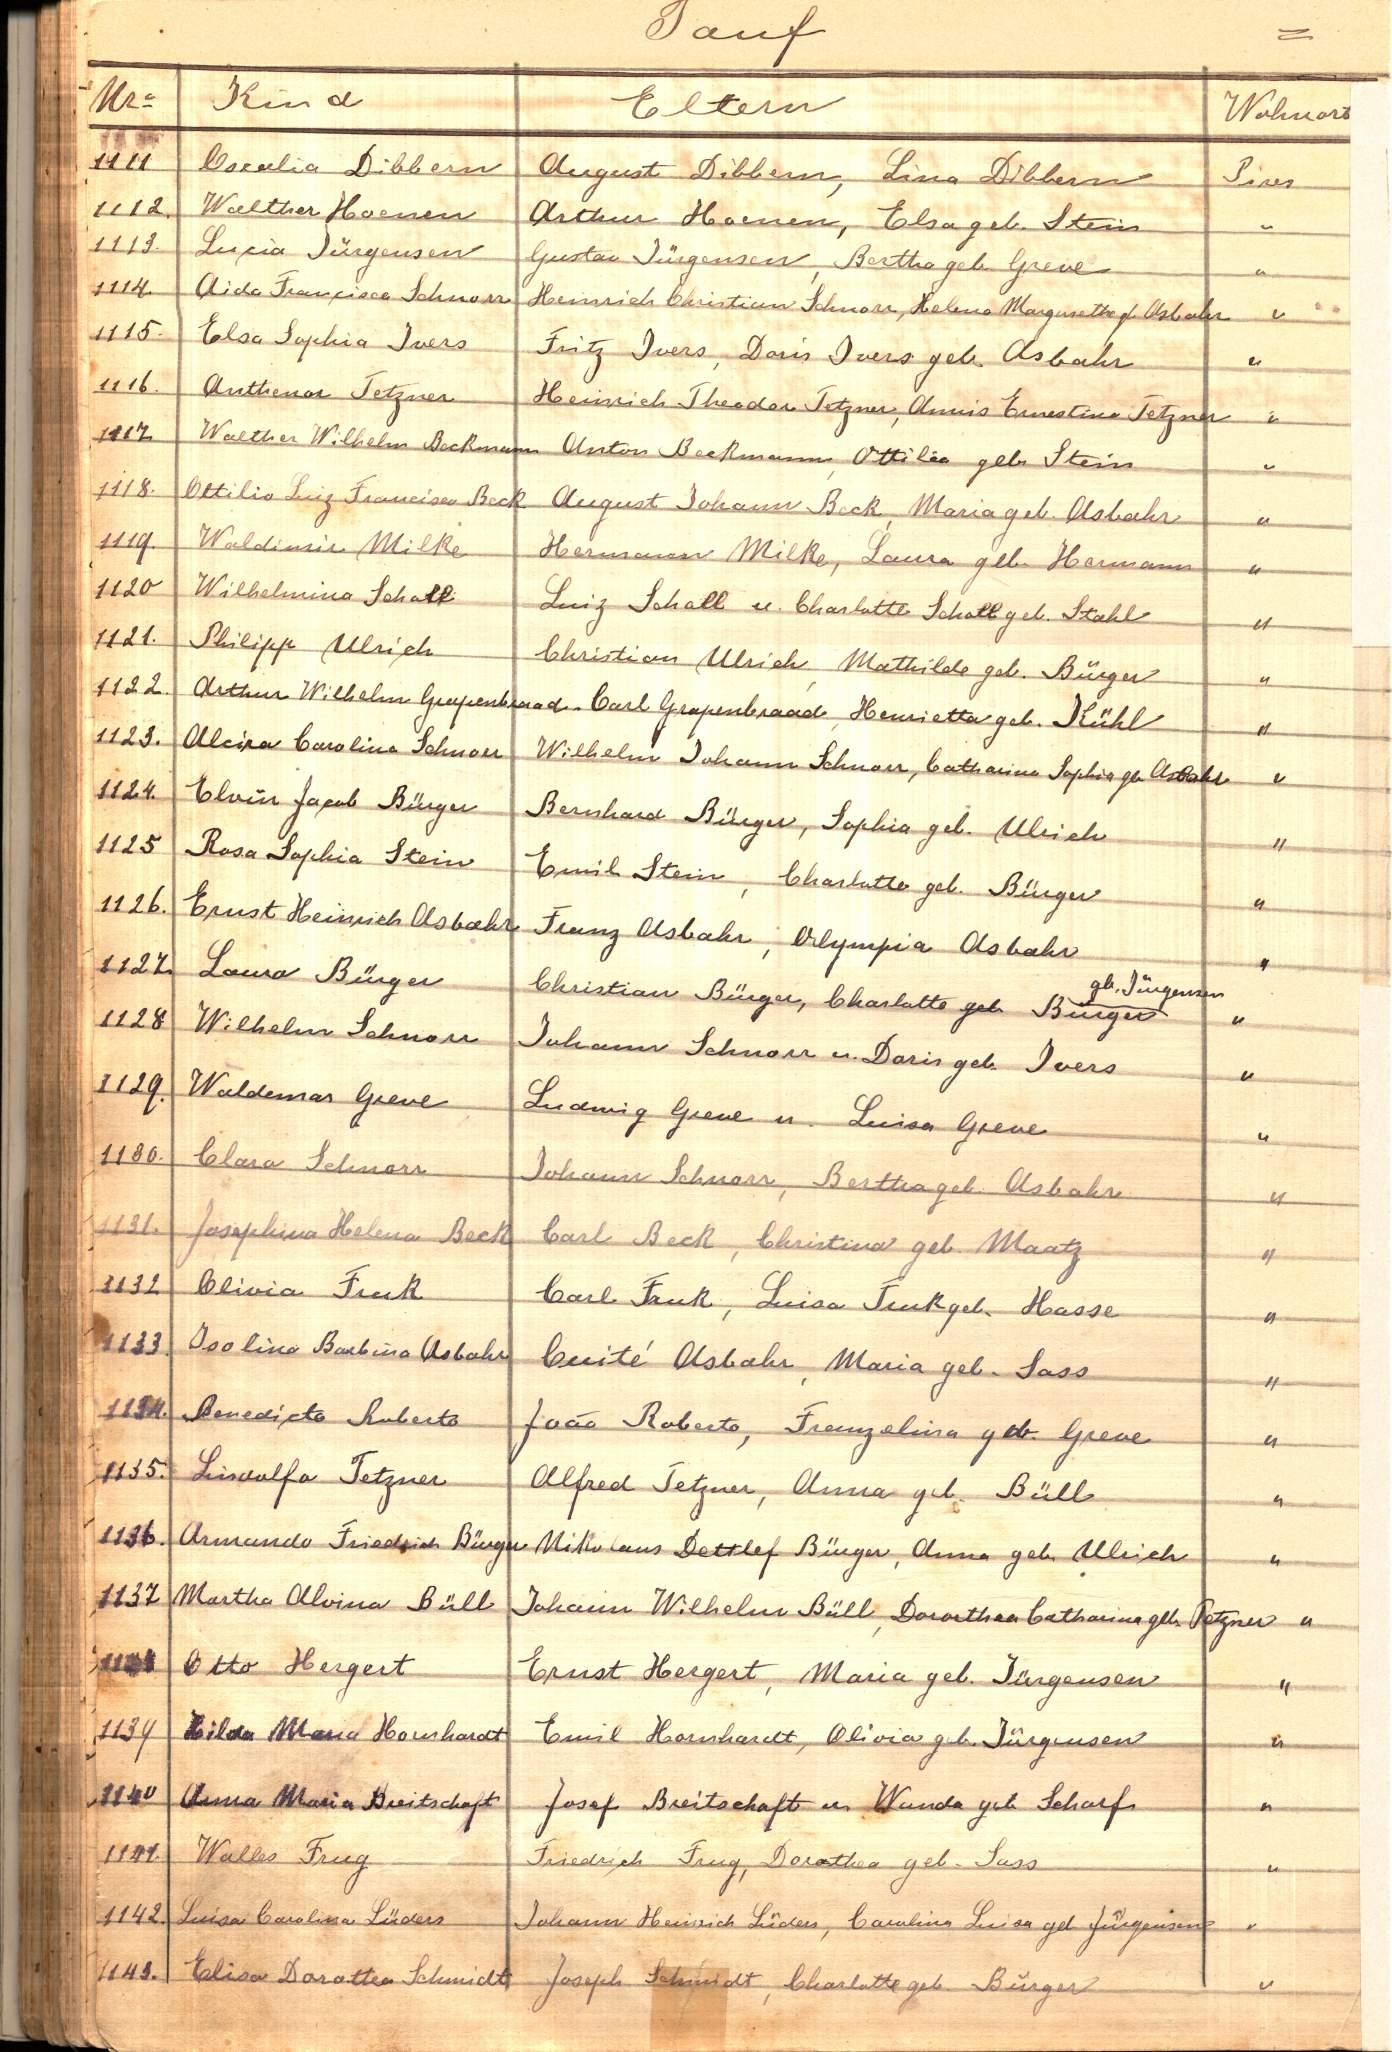 Tauf =
Nr= Kind Eltern Wohnort
1111 Dibbern August Dibbern, Lina Dibbern Pires
1112. Walther Hoenen Arthur Hoenen, Elsa geb. Stein "
1113. Lucia Jürgensen Gustav Jürgensen, Bertha geb. Greve "
1114. Aida Francisca Schnorr Heinrich Christian Schnorr, Helena Margarethe gb Asbahr "
1115. Elsa Sophia Ivers Fritz Ivers, Doris Ivers geb. Asbahr "
1116. Anthenor Tetzner Heinrich Theodor Tetzner, Annis Ernestina Tetzner "
1117. Walther Wilhelm Beckmann Anton Beckmann, Ottilia geb. Stein "
1118. Ottilio Luiz Francisco Beck August Johann Beck, Maria geb. Asbahr "
1119. Waldimir Milke Hermann Milke, Laura geb. Hermann "
1120 Wilhelmina Schall Luiz Schall u. Charlotte Schall geb. Stahl "
1121. Philipp Ulrich Christian Ulrich, Mathilde geb. Bürger "
1122 Arthur Wilhelm Grapenbraad Carl Grapenbraad, Henrietta geb. Kühl "
1123. Alcira Carolina Schnorr Wilhelm Johann Schnorr, Catharina Sophia gb Asbahr "
1124. Elvin Jacob Bürger Bernhard Bürger, Sophia geb. Ulrich "
1125 Rosa Sophia Stein Emil Stein, Charlotte geb. Bürger "
1126. Ernst Heinrich Asbahr Franz Asbahr, Olympia Asbahr "
1127. Laura Bürger Christian Bürger, Charlotte geb. Bürger gb. Jürgensen "
1128 Wilhelm Schnorr Johann Schnorr u. Doris geb. Ivers "
1129. Waldemar Greve Ludwig Greve u. Luisa Greve "
1130. Clara Schnorr Johann Schnorr, Bertha geb. Asbahr "
1131. Josephina Helena Beck Carl Beck, Christina geb. Maatz "
1132 Olivia Fruk Carl Fruk, Luisa Fruk geb. Hasse "
1133. Isolina Barbina Asbahr Cuité Asbahr, Maria geb. Sass "
1134. Benedicto Roberto João Roberto, Franzelina geb. Greve "
1135. Lindolfo Tetzner Alfred Tetzner, Anna geb. Büll "
1136. Armando Friedrich Bürger Nikolaus Dettlef Bürger, Anna geb. Ulrich "
1137 Martha Alvina Büll Johann Wilhelm Büll, Dorothea Catharina geb. Tetzner "
1138 Otto Hergert Ernst Hergert, Maria geb. Jürgensen "
1139 Hilda Maria Hornhardt Emil Hornhardt, Olivia geb. Jürgensen "
1140 Anna Maria Breitschaft Josef Breitschaft u. Wanda geb. Scharf "
1141. Walles Frug Friedrich Frug, Dorothea geb. Sass "
1142. Luisa Carolina Lüders Johann Heinrich Lüders, Carolina Luisa geb Jürgensen "
1143. Elisa Dorattea Schmidt Joseph Schmidt, Charlotte geb. Bürger "